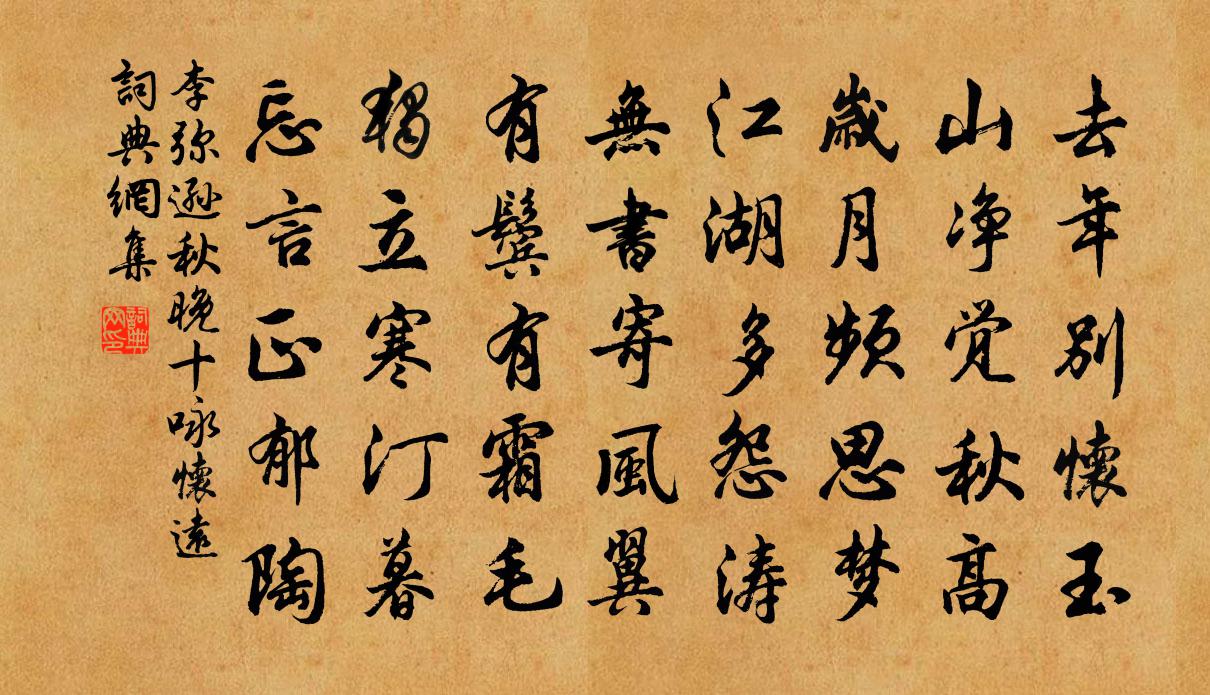 去年别懷玉
山净觉秋高
歲月頻思梦
江湖多怨涛
無書寄風翼
有鬢有霜毛
独立寒汀暮
忘言正郁陶
李弥遜秋晚十咏懷遠
詞典網集
詞典网印